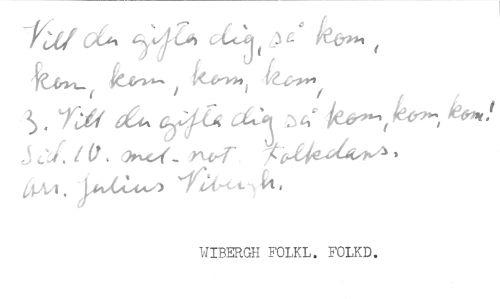 Vill du gifta dig, så kom,
kom, kom, kom, kom,
3. Vill du gifta dig så kom, kom, kom!
Sid. 10. mel-not. Folkdans.
Arr. Julius Vibergh.
WIBERGH FOLKL. FOLKD.